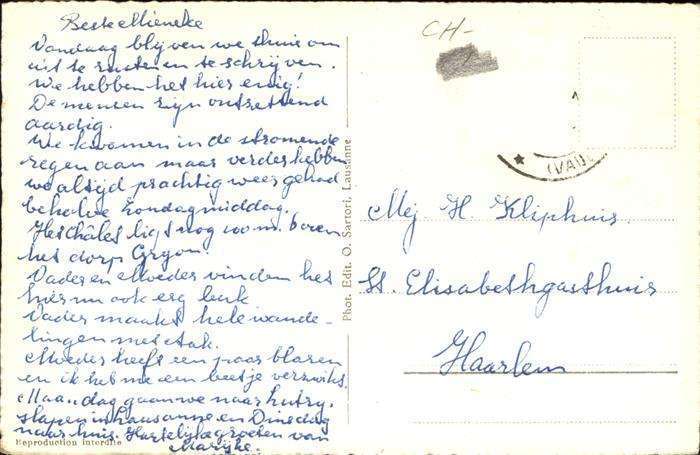 Beste Mieneke
Vandaag blijven we thuis om
uit te rusten en te schrijven.
We hebben het hier enig!
De mensen zijn ontzettend
aardig.
We kwamen in de stromende
regen aan maar verder hebben
we altijd prachtig weer gehad
behalve Zondagmiddag.
Het Châlet ligt nog 100 m. boven
het dorp Gryon.
Vader en Moeder vinden het
hier nu ook erg leuk
Vader maakt hele wande-
lingen met stok.
Moeder heeft een paar blaren
en ik heb me een beetje verzwikt.
Maa..dag gaan we naar hutry,
slapen in Lausanne en Dinsdag
naar huis. Hartelijke groeten van
Marijke.
Reproduction interdite
Phot. Edit. O. Sartori, Lausanne
CH-
(VAUD
Mej H. Kliphuis.
St. Elisabethgasthuis
Haarlem